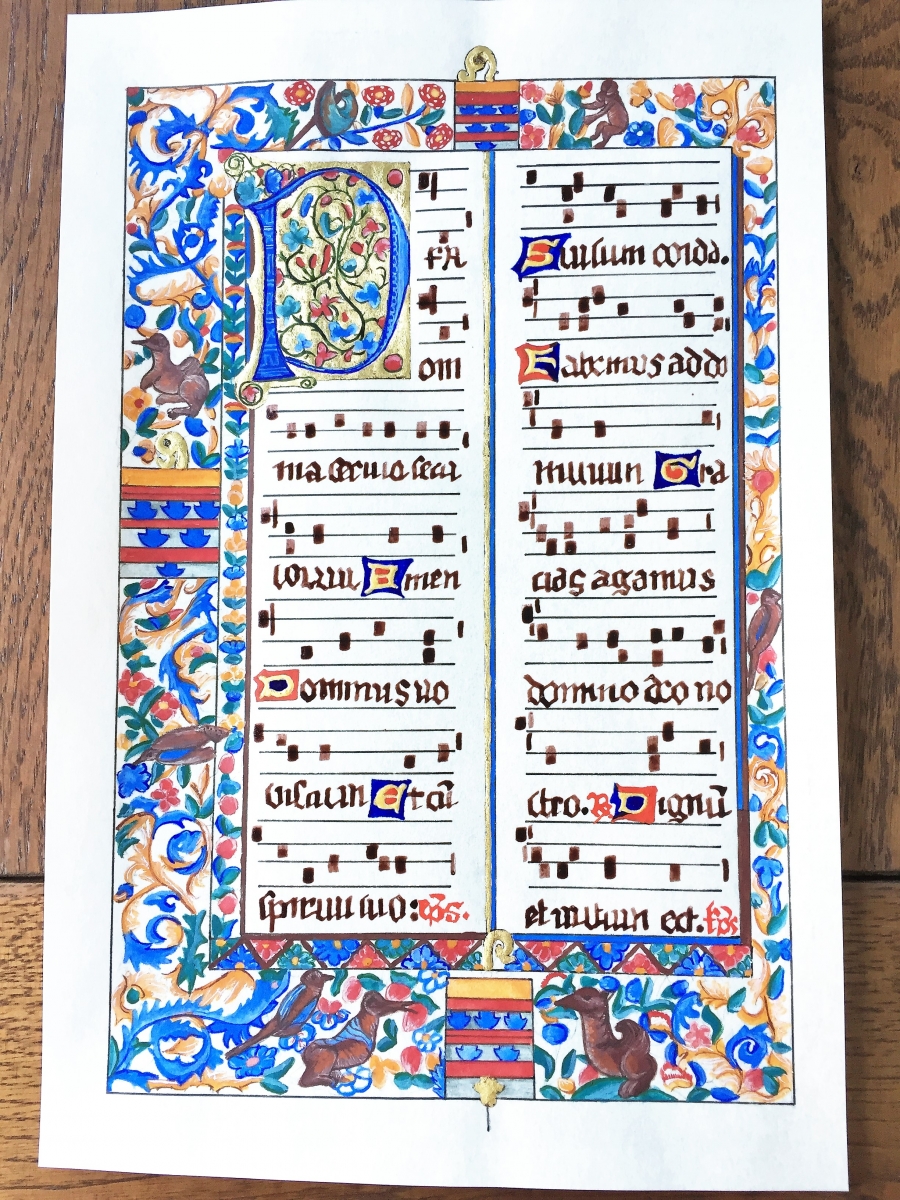 om
Amen
Dominus uo
biscum Et cū
spiritu tuo:
Sursum corda.
Habemus ad do
minum Gra
cias agamus
domino deo no
stro. ℟ Dignū
et iustum est.